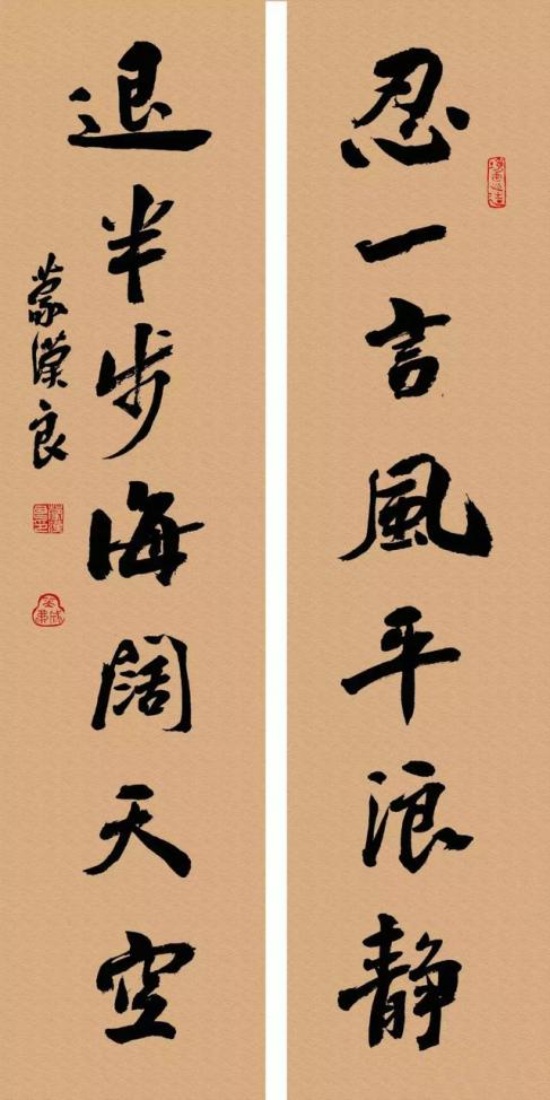 忍一言風平浪静
退半步海阔天空
蒙漢良